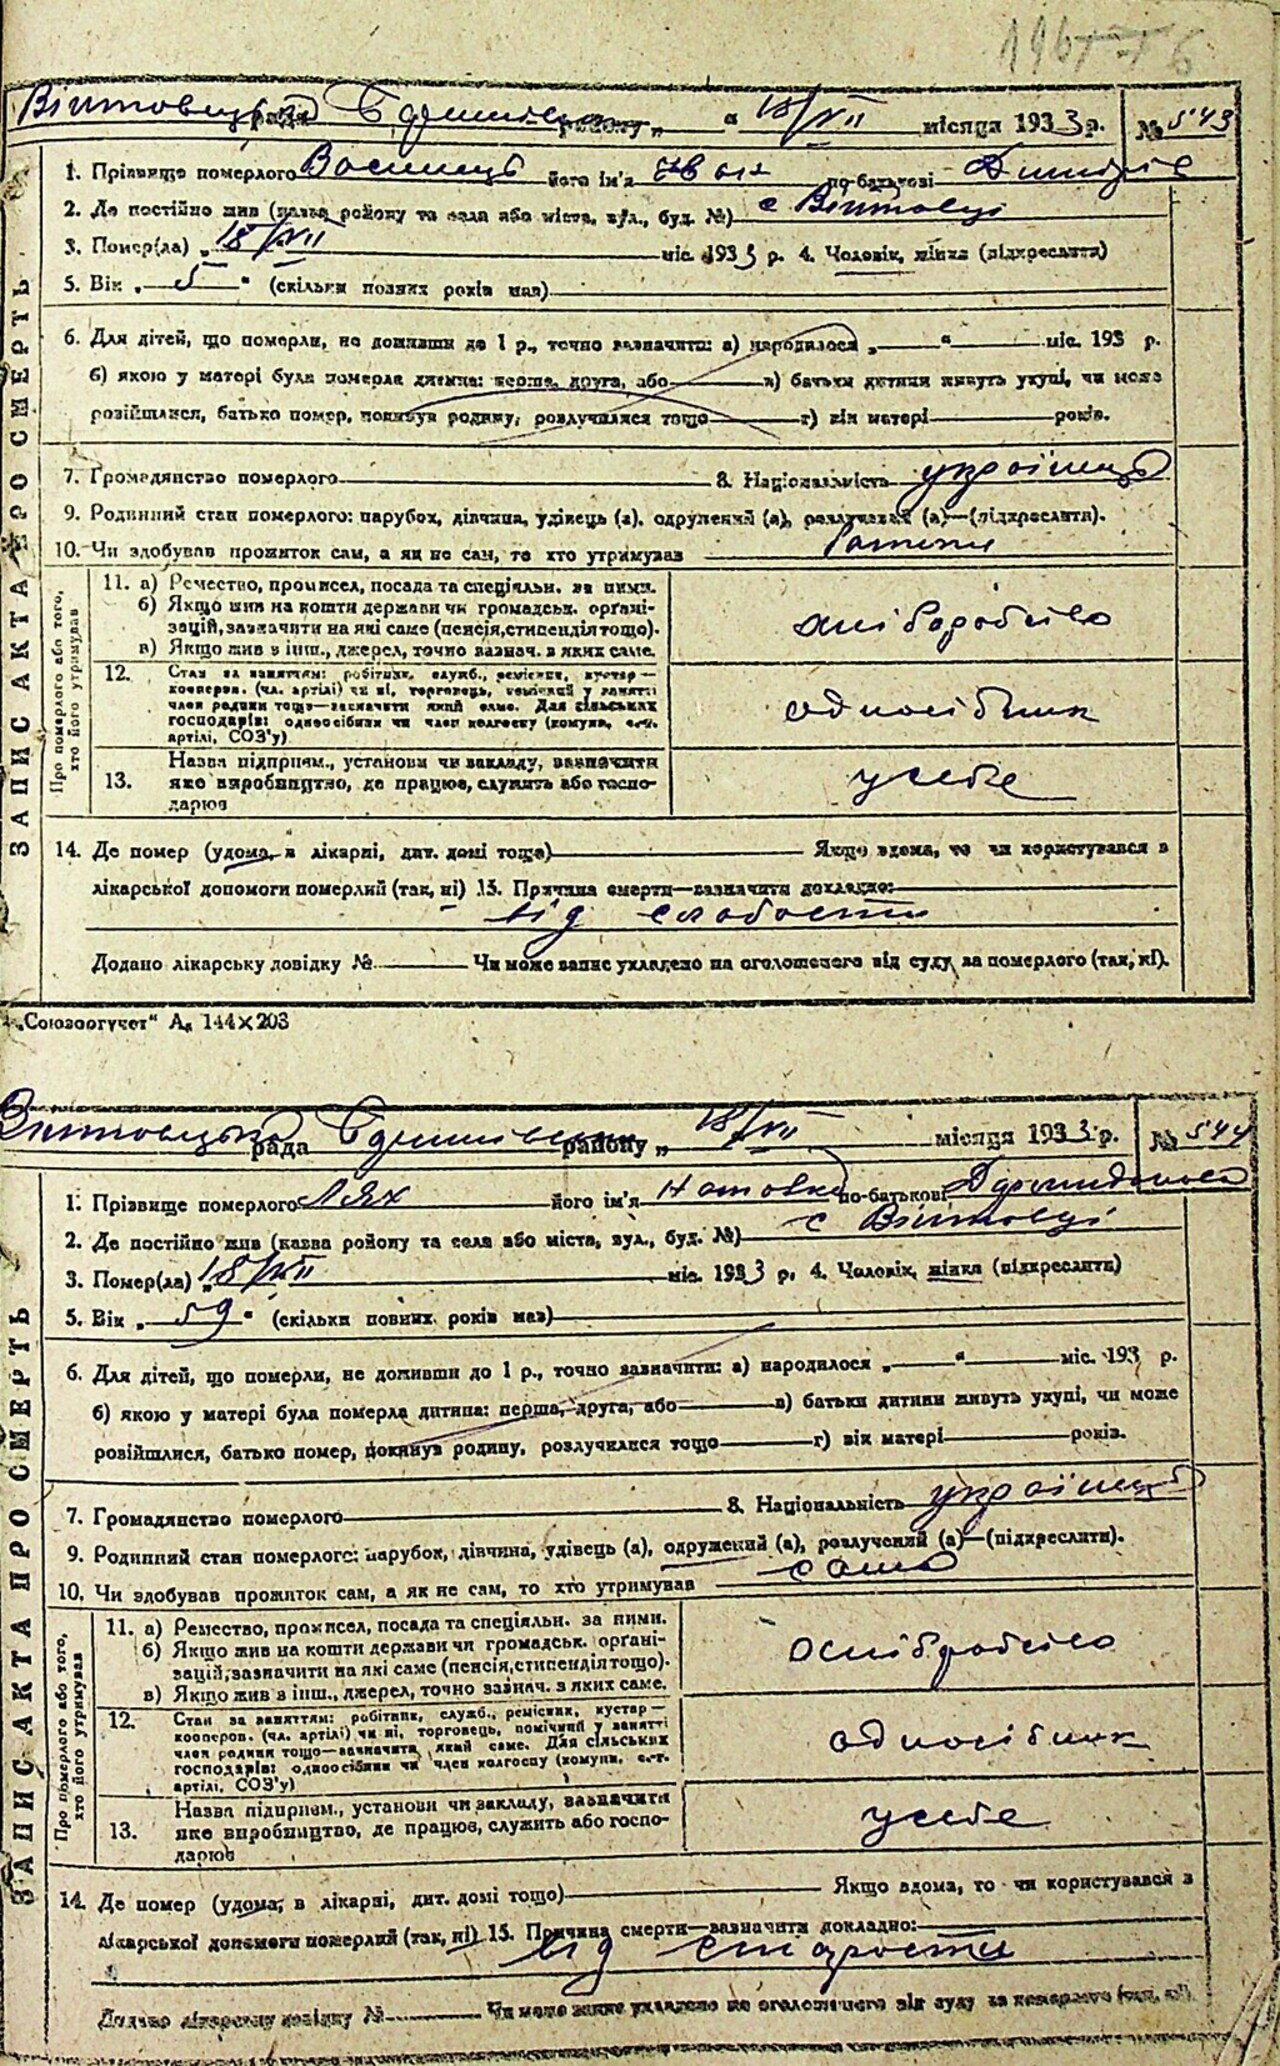 Війтовецька рада району „ “ 18/VII місяця 1933 р. № 543
ЗАПИС АКТА ПРО СМЕРТЬ
1. Прізвище померлого його ім'я Іван по-батькові
2. Де постійно жив (назва району та села або міста, вул., буд. №) с Війтовці
3. Помер(ла) „ 18/VII міс. 1933 р. 4. Чоловік, жінка (підкреслити)
5. Вік „ 5 “ (скільки повних років мав)
6. Для дітей, що померли, не доживши до 1 р., точно зазначити: а) народилося „ “ міс. 193 р.
б) якою у матері була померла дитина: перша, друга, або в) батьки дитини живуть укупі, чи може
розійшлися, батько помер, покинув родину, розлучилися тощо г) вік матері років.
7. Громадянство померлого 8. Національність українець
9. Родинний стан померлого: парубок, дівчина, удівець (а), одружений (а), розлучений (а)—(підкреслити).
10. Чи здобував прожиток сам, а як не сам, то хто утримував
Про померлого або того, хто його утримував
11. а) Ремество, промисел, посада та спеціяльн. за ними.
б) Якщо жив на кошти держави чи громадськ. орґані-
зацій, зазначити на які саме (пенсія, стипендія тощо).
в) Якщо жив з інш., джерел, точно зазнач. з яких саме.
12. Стан за заняттям: робітник, служб., ремісник, кустар—
кооперов. (чл. артілі) чи ні, торговець, помічний у занятті
член родини тощо—зазначити який саме. Для сільських
господарів: одноосібник чи член колгоспу (комуни, с.-г.
артілі, СОЗ'у)
односібник
13. Назва підприєм., установи чи закладу, зазначити
яке виробництво, де працює, служить або госпо-
дарює
у себе
14. Де помер (удома, в лікарні, дит. домі тощо) Якщо вдома, то чи користувався з
лікарської допомоги померлий (так, ні) 15. Причина смерти—зазначити докладно:
від слабости
Додано лікарську довідку № Чи може запис укладено на оголошеного від суду за померлого (так, ні).
„Союзоргучет“ А₅ 144×203
Війтовецька рада району „ 18/VII місяця 1933 р. № 544
ЗАПИС АКТА ПРО СМЕРТЬ
1. Прізвище померлого Лях його ім'я по-батькові
2. Де постійно жив (назва району та села або міста, вул., буд. №) с Війтовці
3. Помер(ла) „ 18/VII міс. 1933 р. 4. Чоловік, жінка (підкреслити)
5. Вік „ 59 “ (скільки повних років мав)
6. Для дітей, що померли, не доживши до 1 р., точно зазначити: а) народилося „ “ міс. 193 р.
б) якою у матері була померла дитина: перша, друга, або в) батьки дитини живуть укупі, чи може
розійшлися, батько помер, покинув родину, розлучилися тощо г) вік матері років.
7. Громадянство померлого 8. Національність українець
9. Родинний стан померлого: парубок, дівчина, удівець (а), одружений (а), розлучений (а)—(підкреслити).
10. Чи здобував прожиток сам, а як не сам, то хто утримував сама
Про померлого або того, хто його утримував
11. а) Ремество, промисел, посада та спеціяльн. за ними.
б) Якщо жив на кошти держави чи громадськ. орґані-
зацій, зазначити на які саме (пенсія, стипендія тощо).
в) Якщо жив з інш., джерел, точно зазнач. з яких саме.
12. Стан за заняттям: робітник, служб., ремісник, кустар—
кооперов. (чл. артілі) чи ні, торговець, помічний у занятті
член родини тощо—зазначити який саме. Для сільських
господарів: одноосібник чи член колгоспу (комуни, с.-г.
артілі, СОЗ'у)
односібник
13. Назва підприєм., установи чи закладу, зазначити
яке виробництво, де працює, служить або госпо-
дарює
у себе
14. Де помер (удома, в лікарні, дит. домі тощо) Якщо вдома, то чи користувався з
лікарської допомоги померлий (так, ні) 15. Причина смерти—зазначити докладно:
від старости
Додано лікарську довідку № Чи може запис укладено на оголошеного від суду за померлого (так, ні).